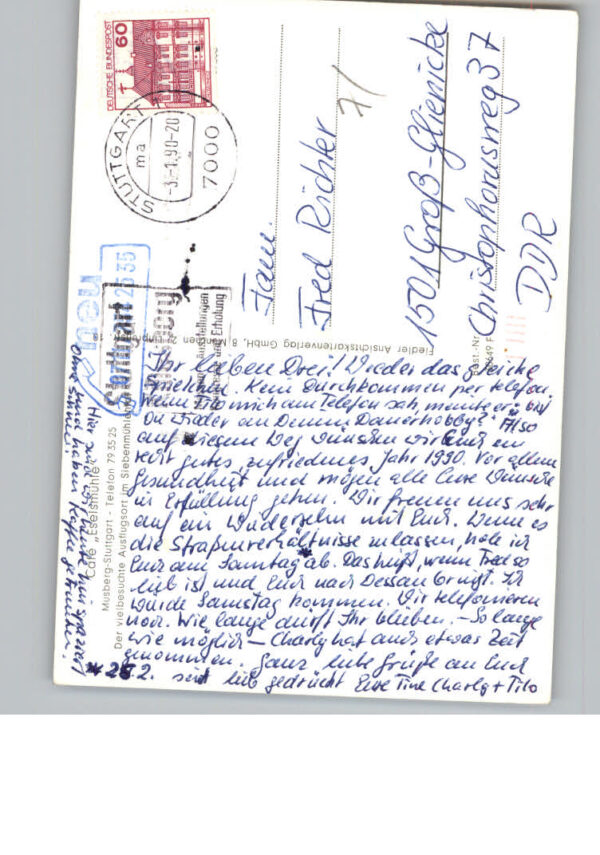 DEUTSCHE BUNDESPOST
60
STUTTGART
ma
-3.-1.90-20
7000
Fam.
Fred Richter
1501 Groß-Glienicke
Christophorusweg 37
DDR
71
neu
2535
Stuttgart
Ausstellungen
und Erholung
Fiedler Ansichtskartenverlag GmbH, 8 München
Best.-Nr.
Café „Eselsmühle"
Musberg-Stuttgart - Telefon 79 35 25
Der vielbesuchte Ausflugsort im Siebenmühlental
Ihr lieben Drei! Wieder das gleiche
Spielchen. Kein Durchkommen per Telefon,
wenn Tilo mich am Telefon sah, meinte er: bist
Du wieder an Deinem Dauerhobby? Also
auf diesem Weg wünschen wir Euch ein
recht gutes, zufriedenes Jahr 1990. Vor allem
Gesundheit und mögen alle Eure Wünsche
in Erfüllung gehen. Wir freuen uns sehr
auf ein Wiedersehn mit Euch. Wenn es
die Straßenverhältnisse zulassen, hole ich
Euch am Samstag ab. Das heißt, wenn Fred so
lieb ist und Euch nach Dessau bringt. Ich
würde Samstag kommen. Wir telefonieren
noch. Wie lange dürft Ihr bleiben. – So lange
wie möglich – Charly hat auch etwas Zeit
genommen. Ganz liebe Grüße an Euch
seid lieb gedrückt Eure Tine Charly + Tilo
Hier sind wir heute hin spaziert
und haben Kaffee getrunken.
ohne Sinne!
* 26.2.